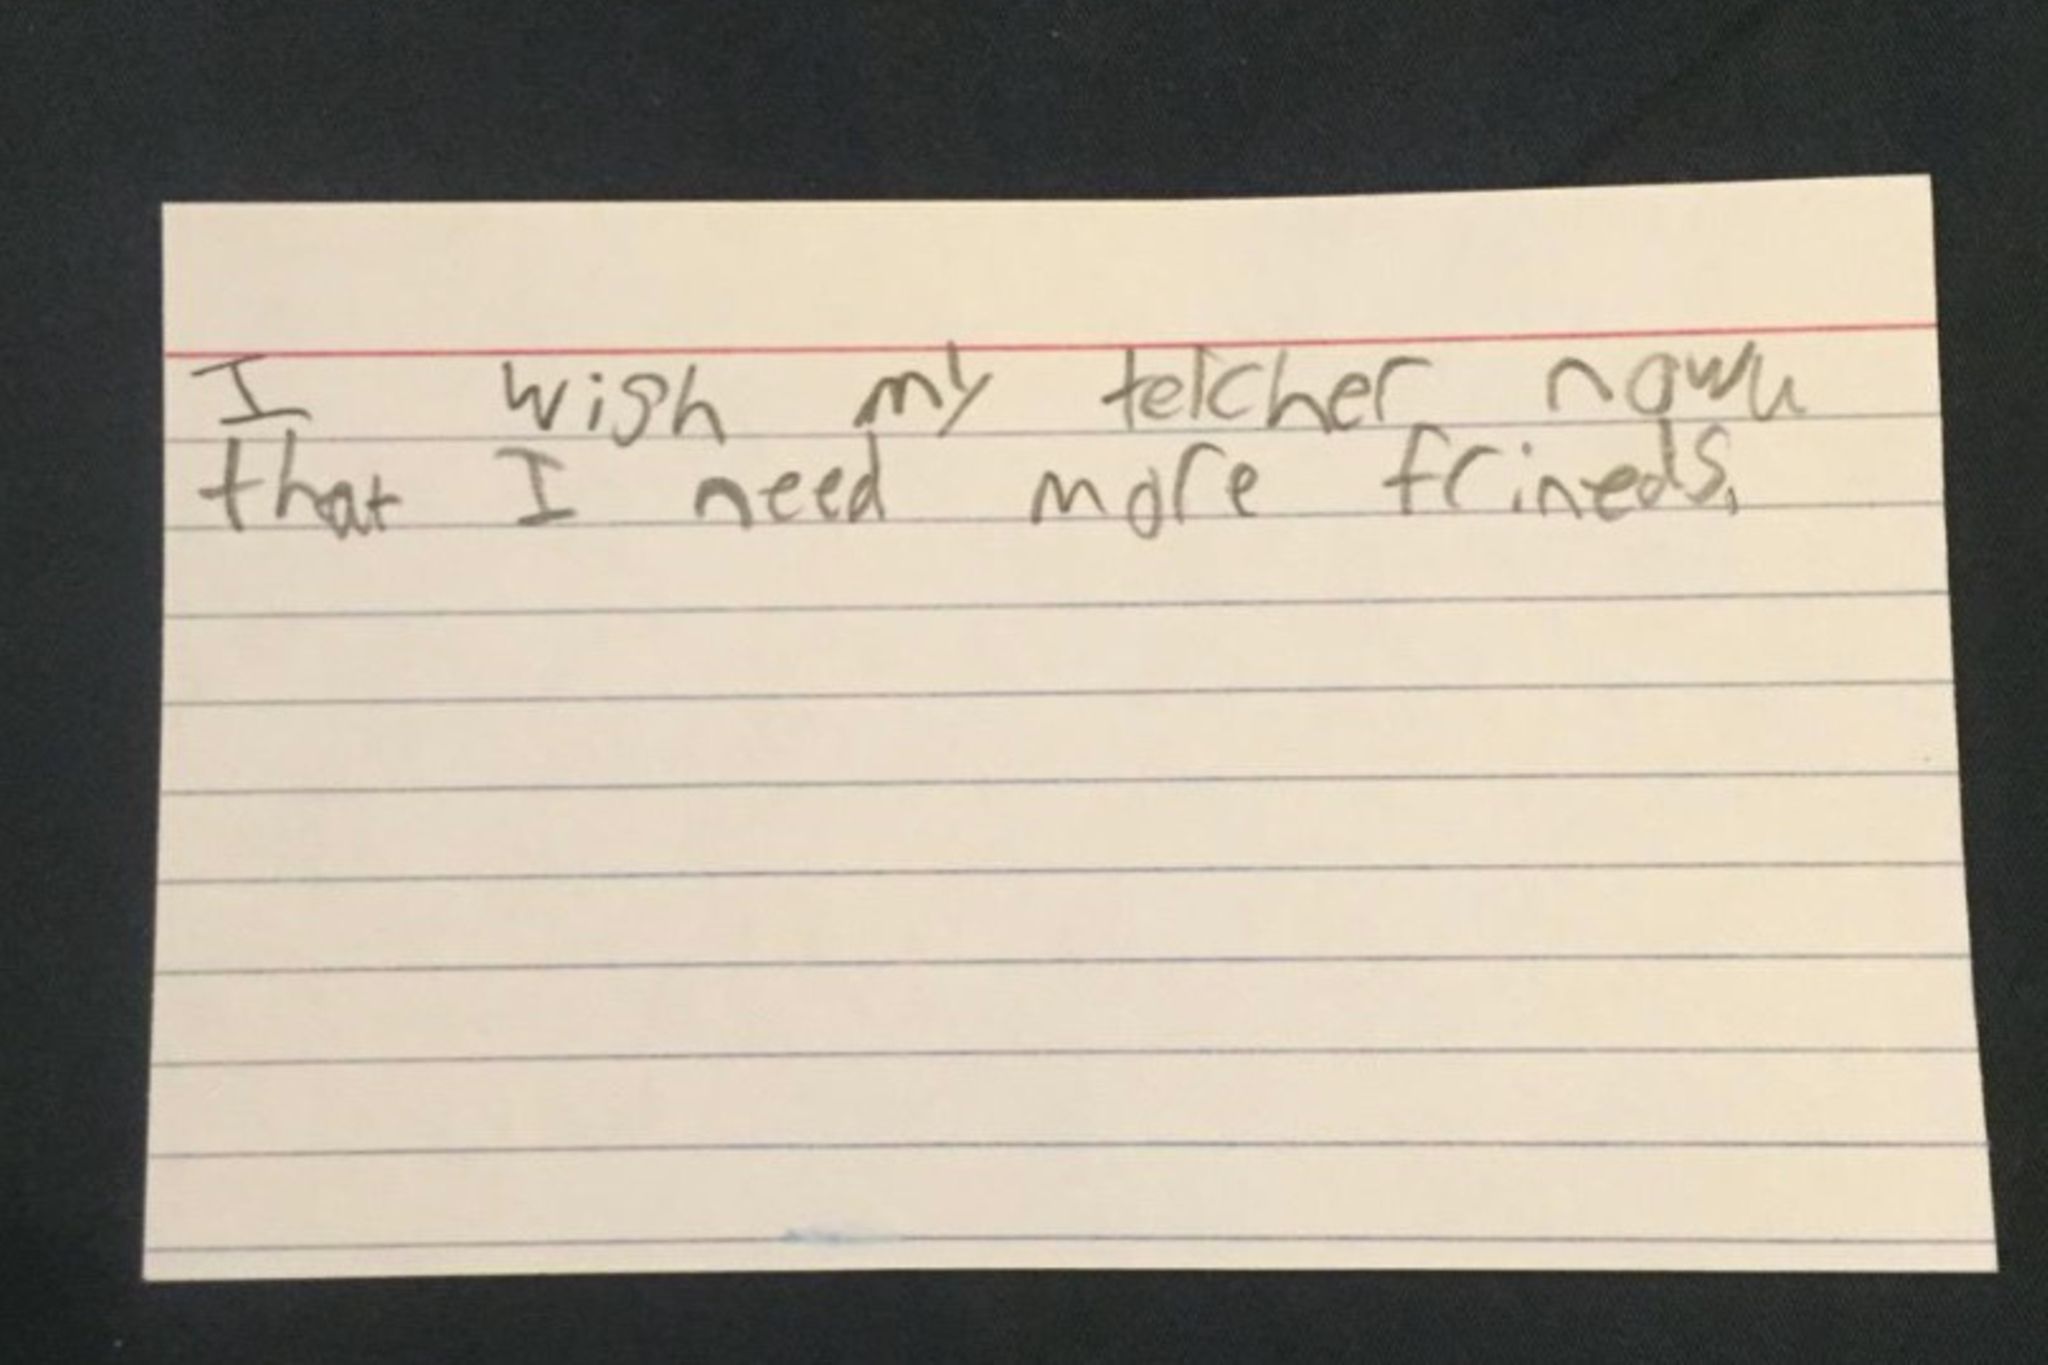 I wish my telcher nowu
that I need more frineds.